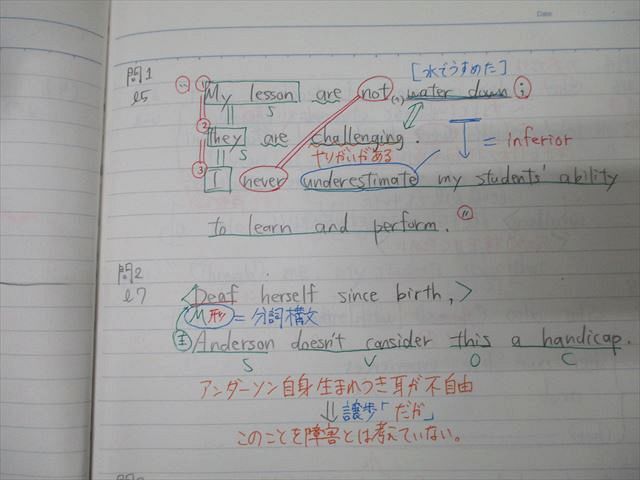 Date
問1
[水でうすめた]
l5 " ① My lesson are not (1) water down ;
S
② they are challenging.
S やりがいがある = inferior
③ I never underestimate my students' ability
to learn and perform. "
問2
l7 <Deaf herself since birth,>
M 形 = 分詞構文
主 Anderson doesn't consider this a handicap.
S V O C
アンダーソン自身生まれつき耳が不自由
⇓ 譲歩「だが」
このことを障害とは考えていない。